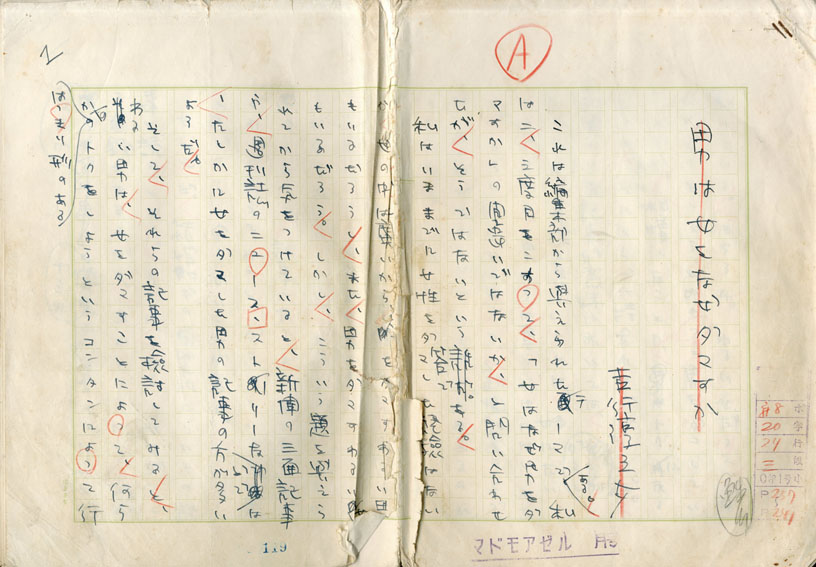 A
男は女をなぜダマすか
吉行淳之介
これは編集部から与えられたテーマで、私
は二、三度目をこすって、「女はなぜ男をダ
マすか」の間違いではないか、と問い合わせ
たが、そうではないという
私はいままでに女性をダマした経験はない
が、世の中は広いから、女をダマすわるい男
もいるだろうし、また、男をダマすわるい
もいるだろう。しかし、こういう題を与えら
れてから気をつけていると、新聞の三面記事
や、週刊誌のニュース・ストーリーなどでは
、たしかに女をダマした男の記事の方が多い
ようだ。
そして、それらの記事を検討してみると、
わるい男は、女をダマすことによって、何ら
かのトクをしようというコンタンによって行
はっきり形のある
119
マドモアゼル
8
20
29
三